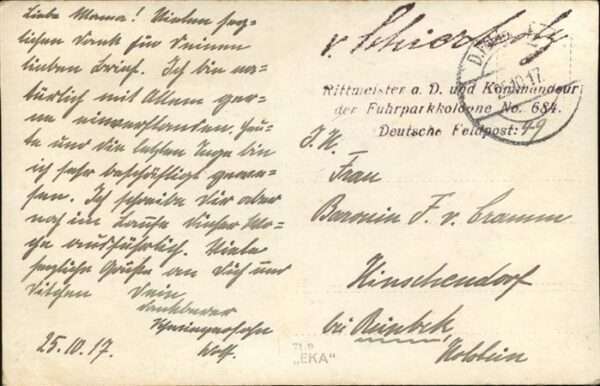 Liebe Mama! Vielen herz-
lichen Dank für Deinen
lieben Brief. Ich bin na-
türlich mit Allem ger-
ne einverstanden. Heu-
te und die letzten Tage bin
ich sehr beschäftigt gewe-
sen. Ich schreibe Dir aber
noch im Laufe dieser Wo-
che ausführlich. Viele
herzliche Grüße an Dich und
Dein
dankbarer
Schwiegersohn
25.10.17.
v.
D.
10.17
Rittmeister a. D. und Kommandeur
der Fuhrparkkolonne No. 684.
Deutsche Feldpost: 49
Frau
Baronin F. v. Cramm
Hinschendorf
bei Reinbek,
Holstein
"EKA"